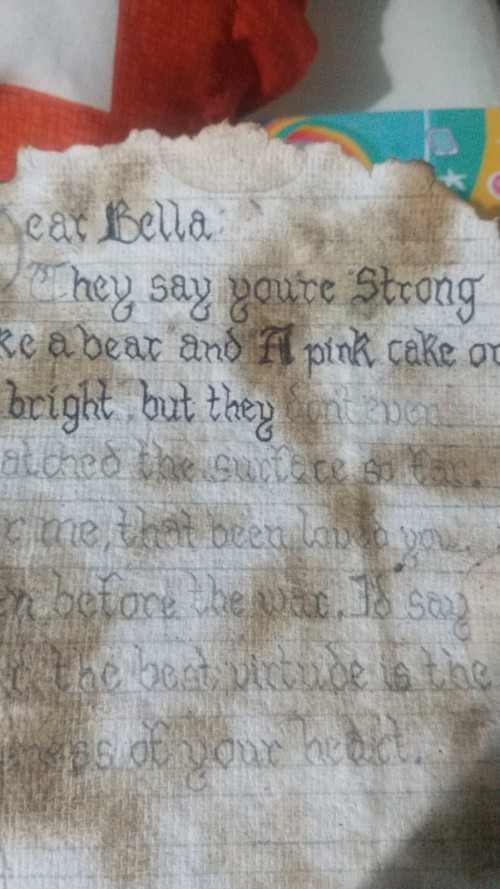 ear Bella
They say you're Strong
ke a bear and A pink cake or
bright, but they dont even
atched the surface so far.
r me, that been loved you,
en before the war, I'd say
r the best virtude is the
ness of your heart.